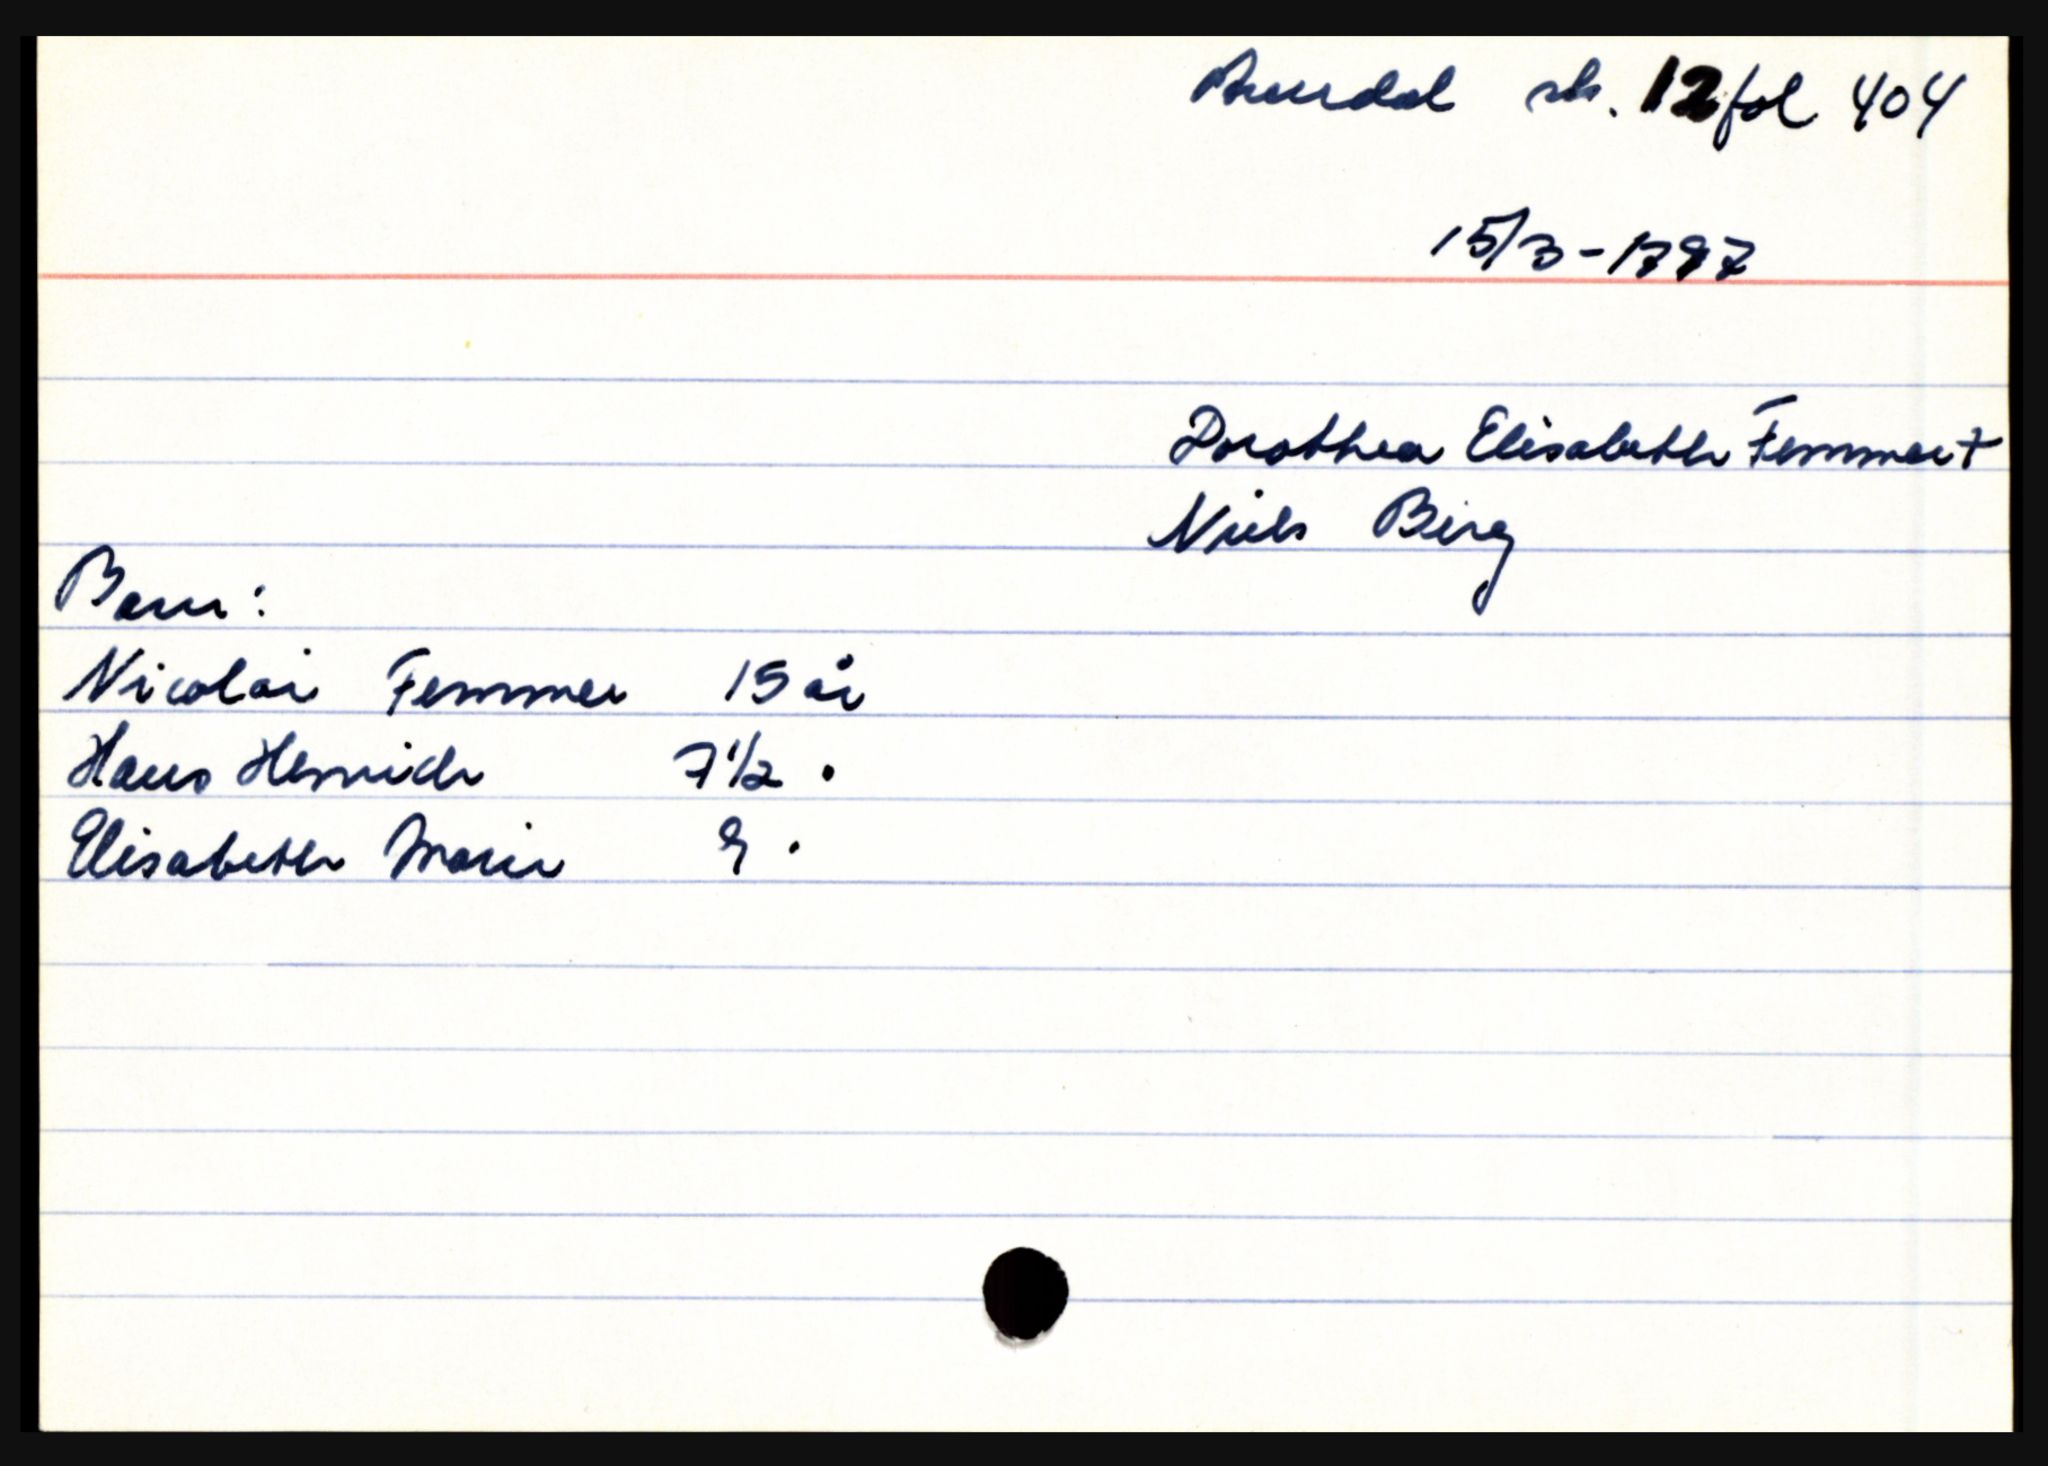 Arendal sk. 12 fol 404
15/3-1797
Dorothea Elisabeth Femmer +
Niels Berg
Barn:
Nicolai Femmer 15 år
Hans Henrich 7 1/2 .
Elisabeth Marie 9 .